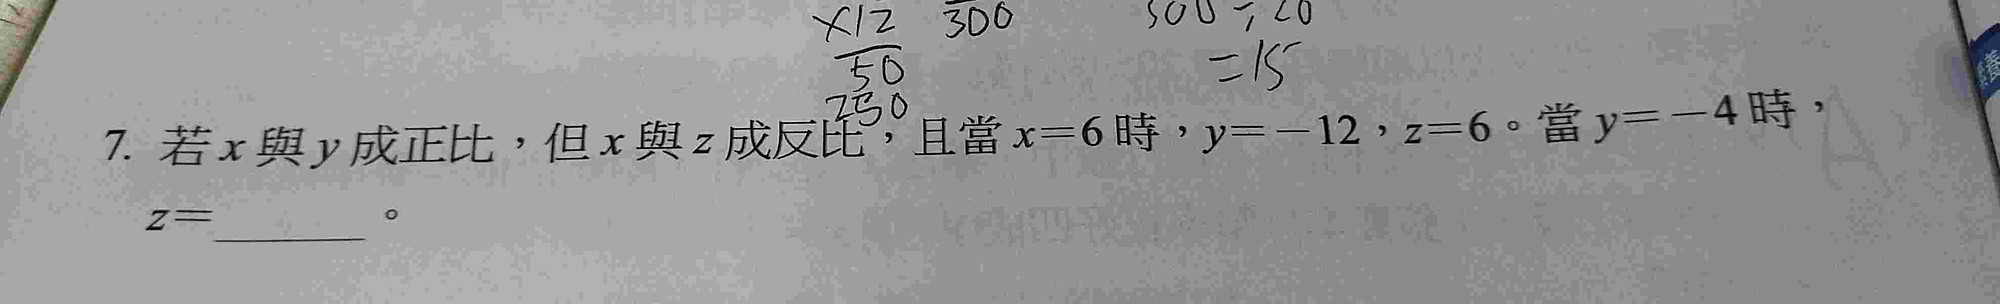 ×12 300
50
250
=15
7. 若x與y成正比，但x與z成反比，且當x=6時，y=-12，z=6。當y=-4時，
z=______。